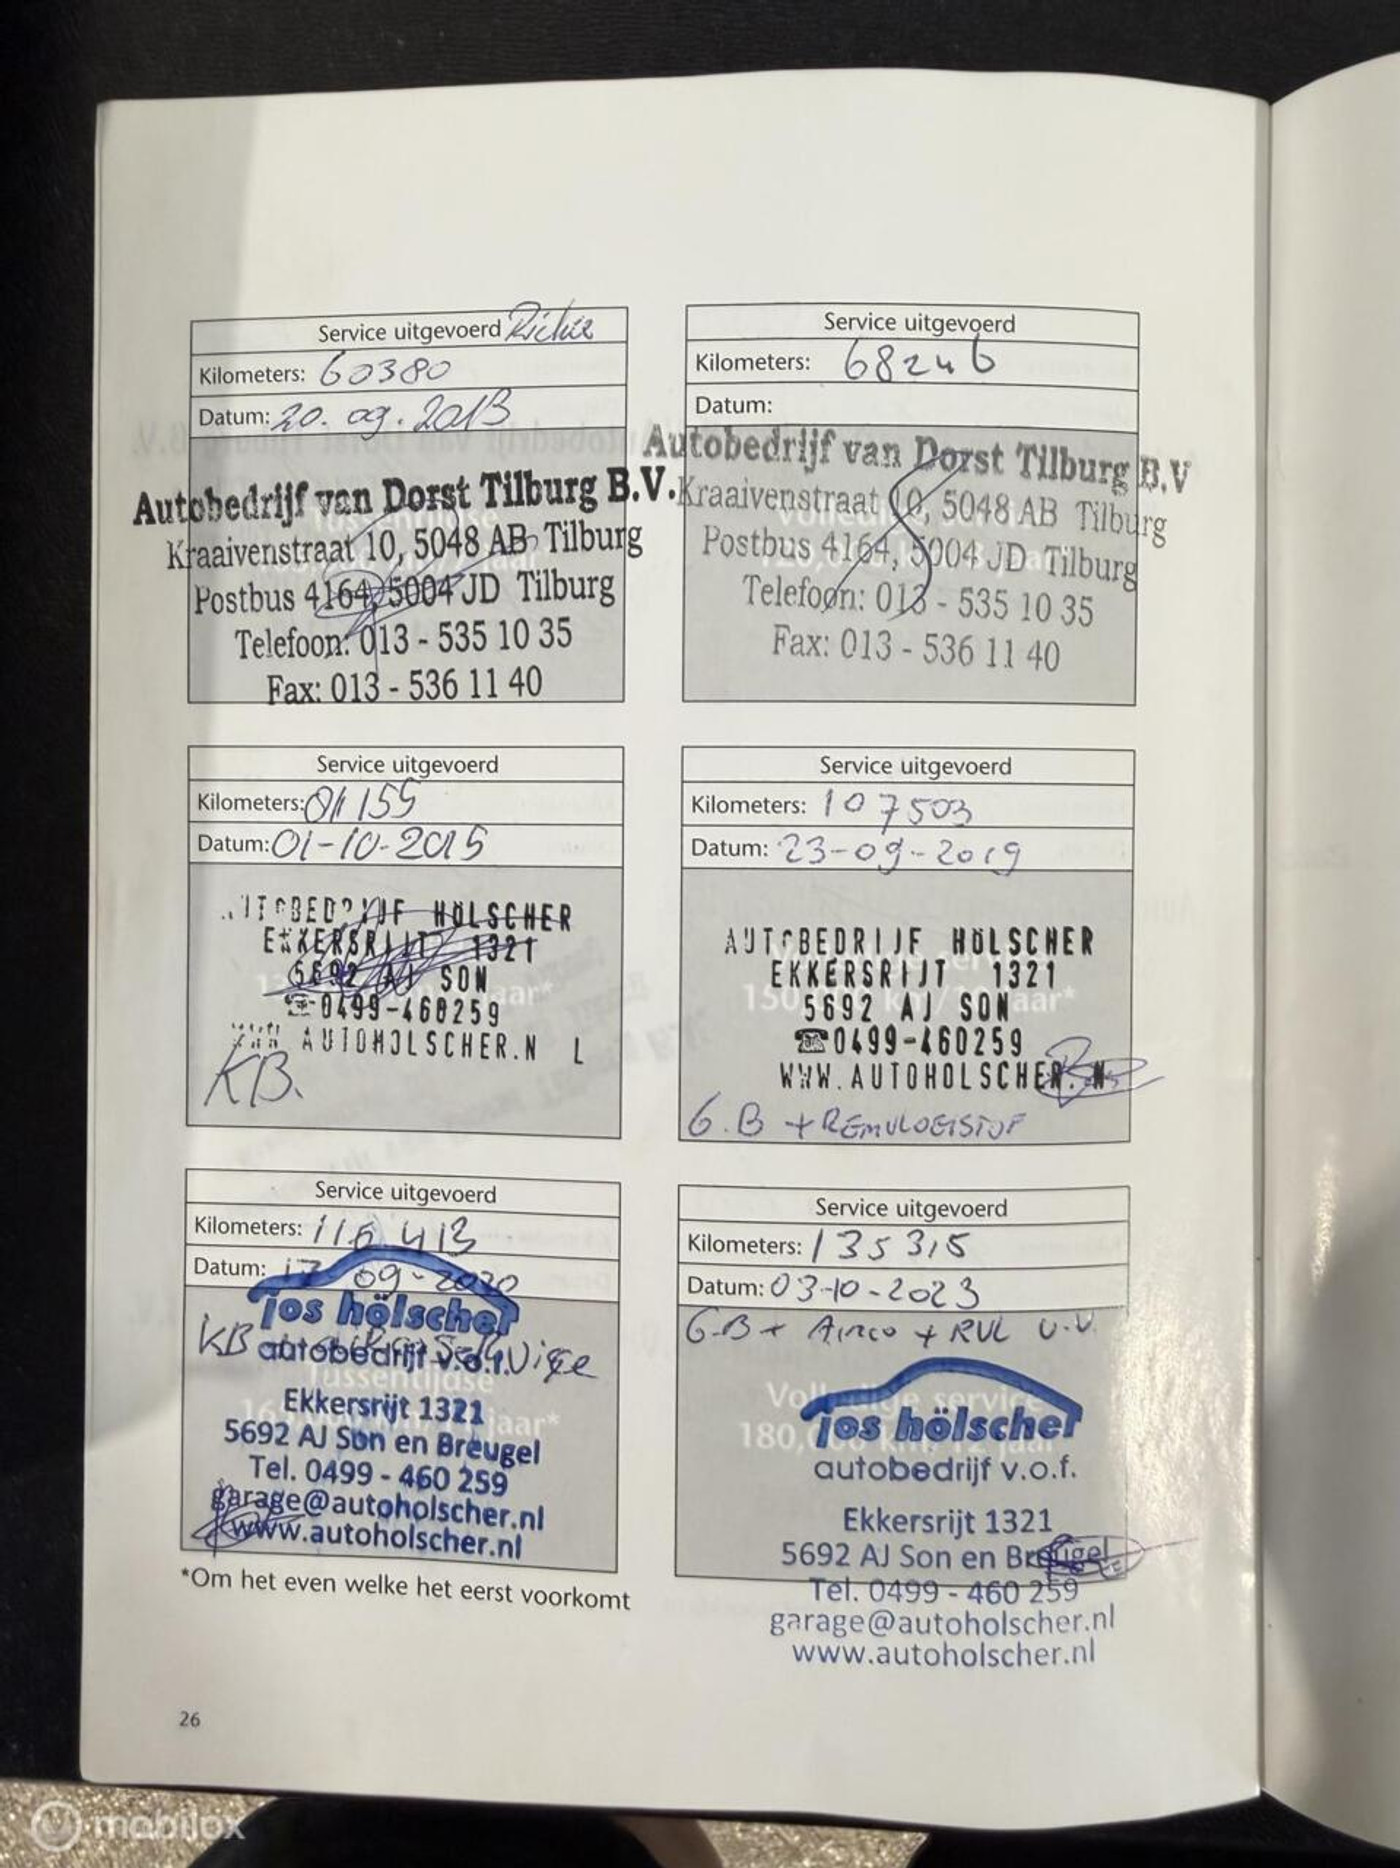 Service uitgevoerd Richie
Kilometers: 60380
Datum: 20.09.2013
Autobedrijf van Dorst Tilburg B.V.
Kraaivenstraat 10, 5048 AB Tilburg
Postbus 4164, 5004 JD Tilburg
Telefoon: 013 - 535 10 35
Fax: 013 - 536 11 40
Service uitgevoerd
Kilometers: 68246
Datum:
Autobedrijf van Dorst Tilburg B.V
Kraaivenstraat 10, 5048 AB Tilburg
Postbus 4164, 5004 JD Tilburg
Telefoon: 013 - 535 10 35
Fax: 013 - 536 11 40
Service uitgevoerd
Kilometers: 81155
Datum: 01-10-2015
AUTOBEDRIJF HOLSCHER
EKKERSRIJT 1321
5692 AJ SON
☎0499-460259
WWW.AUTOHOLSCHER.N L
KB.
Service uitgevoerd
Kilometers: 107503
Datum: 23-09-2019
150,000 km/10 jaar*
AUTOBEDRIJF HOLSCHER
EKKERSRIJT 1321
5692 AJ SON
☎0499-460259
WWW.AUTOHOLSCHER.N
G.B + REMVLOEISTOF
Service uitgevoerd
Kilometers: 116413
Datum: 17-09-2020
jos hölscher
KB
autobedrijf v.o.f.
Tussentijdse
Ekkersrijt 1321
5692 AJ Son en Breugel
Tel. 0499 - 460 259
garage@autoholscher.nl
www.autoholscher.nl
Service uitgevoerd
Kilometers: 135315
Datum: 03-10-2023
G.B + AIRCO + RUL V.V.
Volledige service
180,000 km/12 jaar*
jos hölscher
autobedrijf v.o.f.
Ekkersrijt 1321
5692 AJ Son en Breugel
Tel. 0499 - 460 259
garage@autoholscher.nl
www.autoholscher.nl
*Om het even welke het eerst voorkomt
26
mobilox